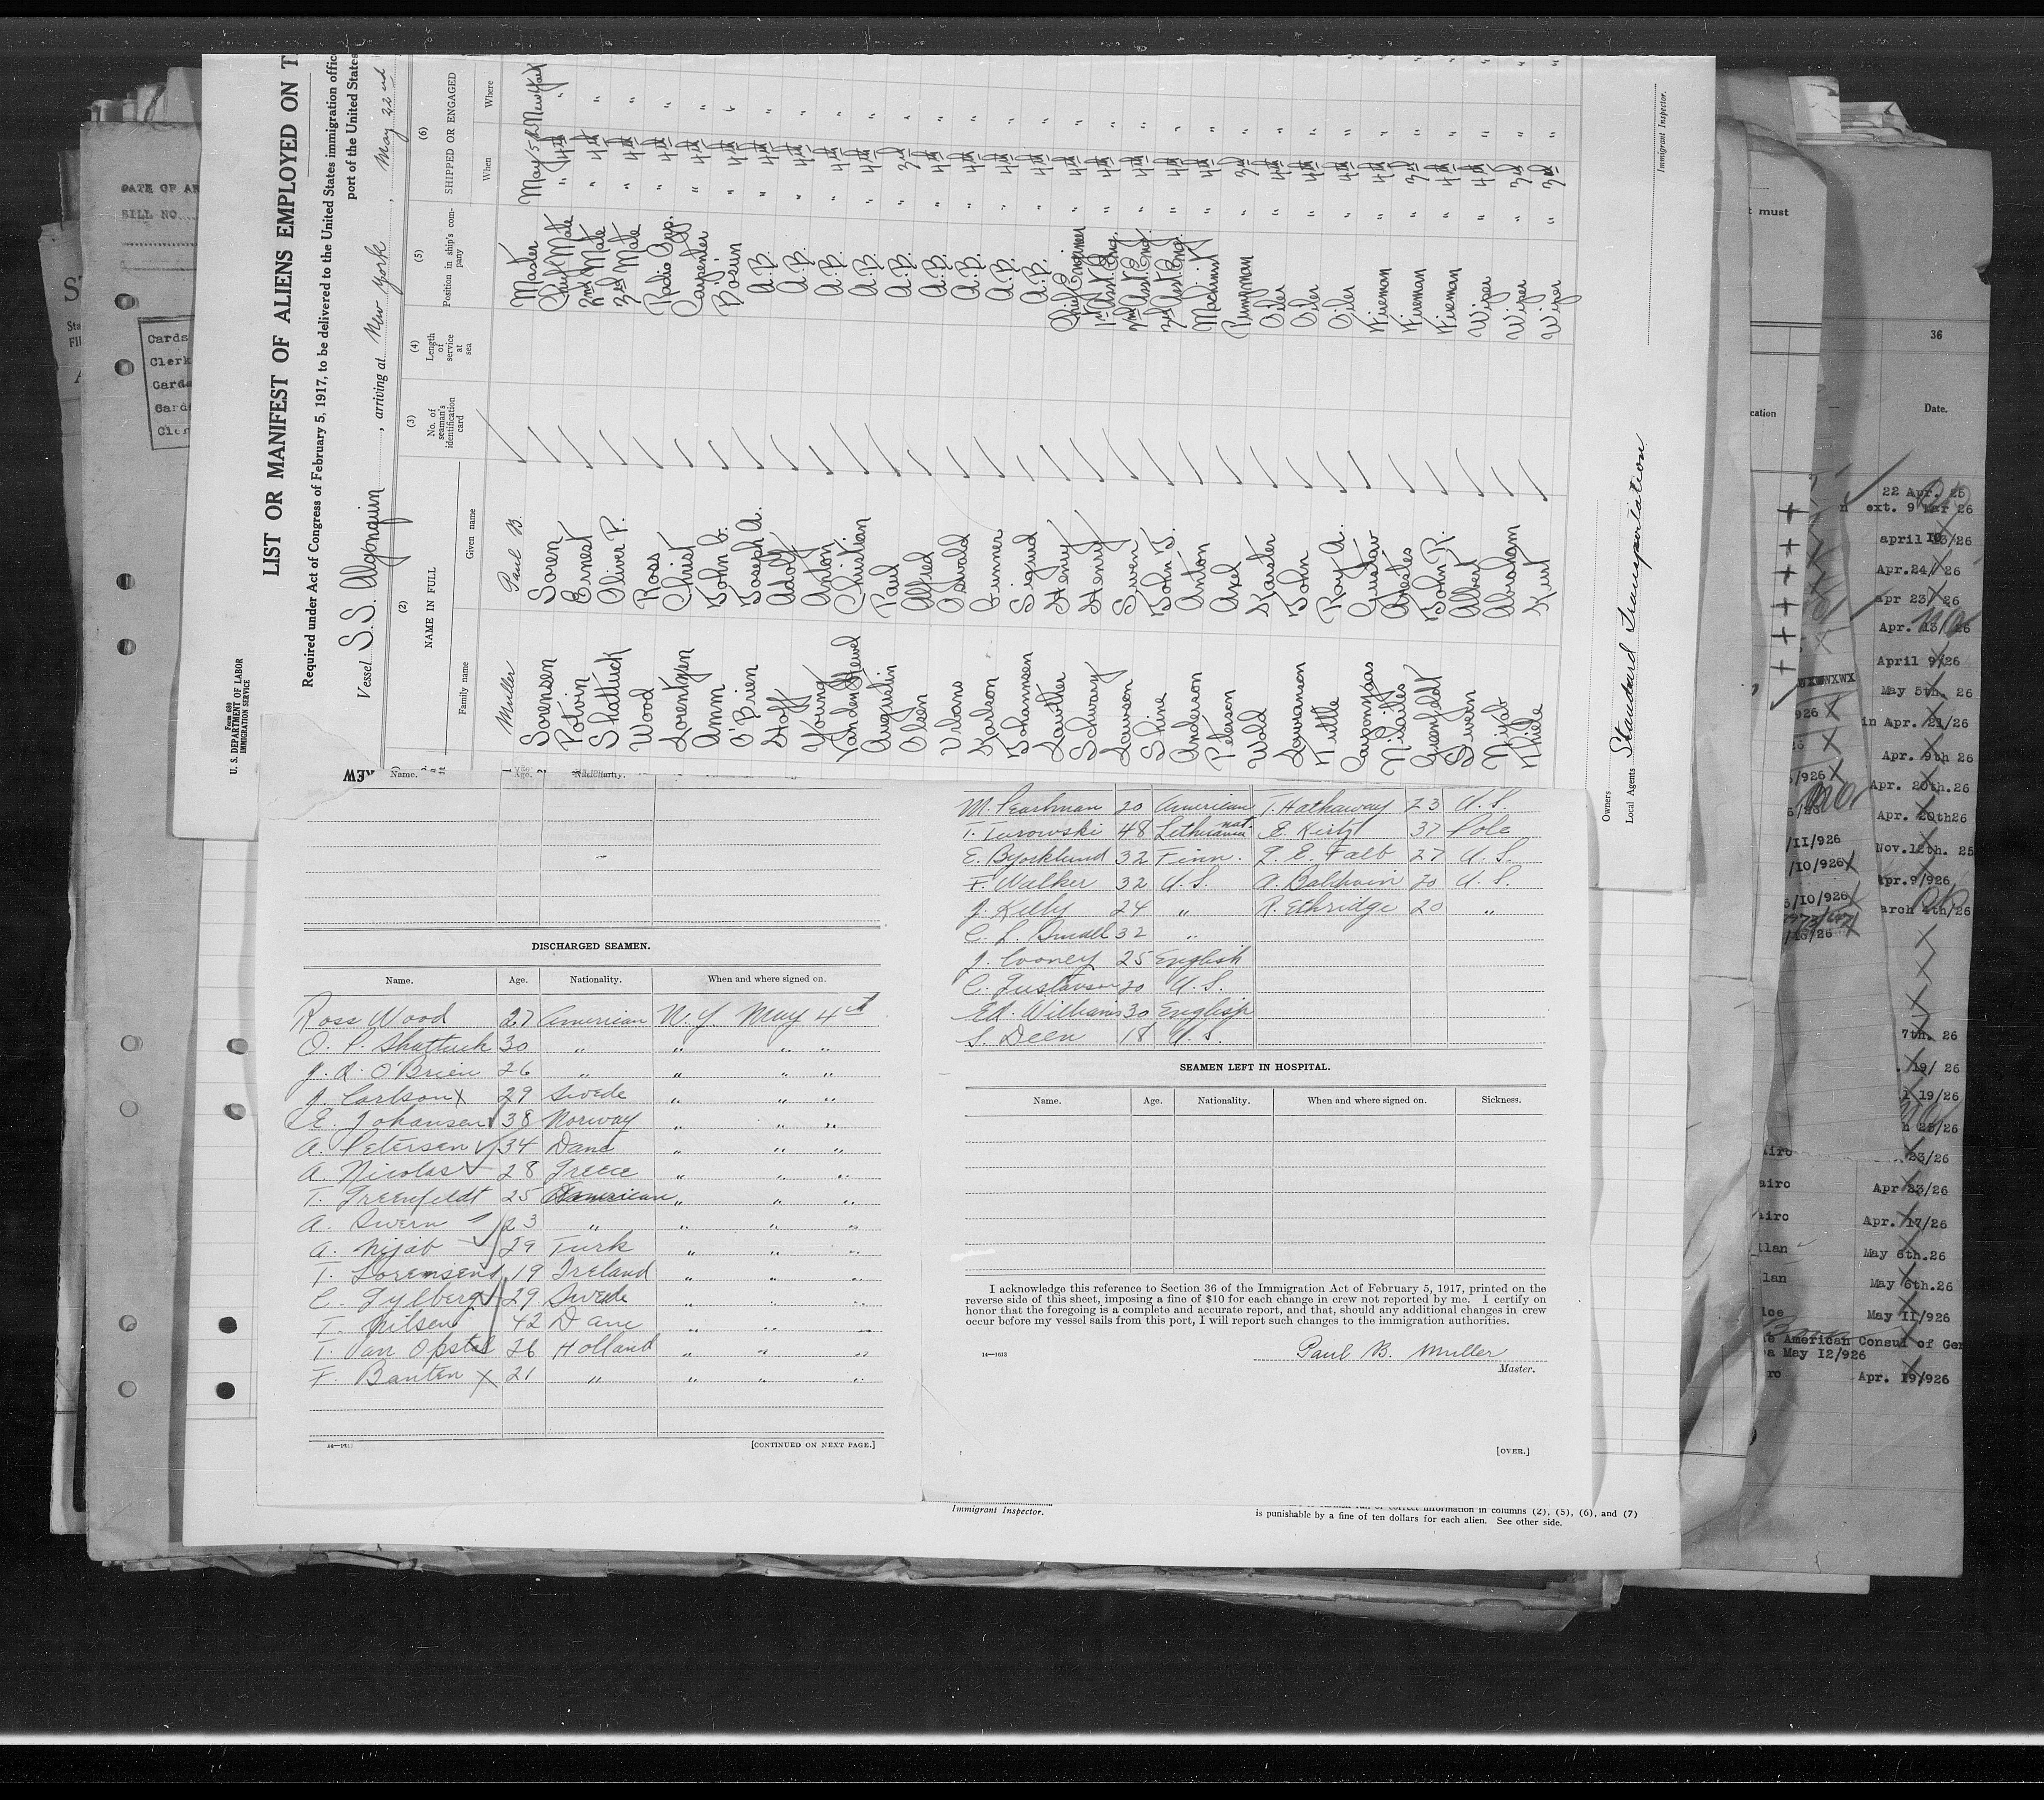 LIST OR MANIFEST OF ALIENS EMPLOYED ON T
Required under Act of Congress of February 5, 1917, to be delivered to the United States immigration offic
port of the United States
Vessel S.S. Algonquin, arriving at New York, May 22nd
Form 680
U. S. DEPARTMENT OF LABOR
IMMIGRATION SERVICE
(2) (3) (4) (5) (6)
NAME IN FULL No. of seaman's identification card Length of service at sea Position in ship's company SHIPPED OR ENGAGED
Family name Given name When Where
Muller Paul B. Master May 5th New York
Sorensen Soren Chief Mate " 4th "
Potvin Ernest 2nd Mate " 4th "
Shattuck Oliver P. 3rd Mate " 4th "
Wood Ross Radio Opp. " 4th "
Lorentzen Christ Carpenter " 4th "
Amm John C. Bosun " 4th "
O'Brien Joseph A. A.B. " 4th "
Hoff Adolf A.B. " 4th "
Young Anton A.B. " 4th "
Vanden Heuvel Christian A.B. " 4th "
Augustin Paul A.B. " 3rd "
Olsen Alfred A.B. " 4th "
Urbans Oswald A.B. " 4th "
Karlson Gunner A.B. " 4th "
Johannsen Sigurd A.B. " 4th "
Lawther Henry Chief Engineer " 4th "
Schwary Henry 1st Asst. Eng. " 4th "
Lawson Swen 2nd Asst. Eng. " 4th "
Shine John J. 3rd Asst. Eng. " 4th "
Anderson Anton Machinist " 4th "
Petersen Axel Pumpman " 3rd "
Wold Karster Oiler " 4th "
John Oiler " 4th "
Tuttle Roy A. Oiler " 4th "
Gustav Fireman " 4th "
Arestes Fireman " 3rd "
Greenfeldt John R. Fireman " 4th "
Swern Albert Wiper " 4th "
Nijab Abraham Wiper " 3rd "
Thiele Kurt Wiper " 3rd "
Immigrant Inspector.
Owners
Local Agents Standard Transportation
DISCHARGED SEAMEN.
Name. Age. Nationality. When and where signed on.
Ross Wood 27 American N.Y. May 4th
O. P. Shattuck 30 " " " "
J. A. O'Brien 26 " " " "
J. Carlson X 29 Swede " " "
E. Johansen 38 Norway " " "
A. Petersen 34 Dane " " "
A. Nicolas 28 Greece " " "
T. Greenfeldt 25 American " " "
A. Swern 23 " " " "
A. Nijab 29 Turk " " "
T. Lorensend 19 Ireland " " "
C. Gylberg 29 Swede " " "
T. Nilsen 42 Dane " " "
T. Van Opstel 26 Holland " " "
F. Banten X 21 " " " "
[CONTINUED ON NEXT PAGE.]
M. Pearlman 20 American T. Hathaway 23 U.S.
T. Turowski 48 Lethuania nat. E. Kirtz 37 Pole
E. Byorklund 32 Finn. L. E. Falb 27 U.S.
F. Walker 32 U.S. A. Baldwin 20 U.S.
J. Kelly 24 " R. Ethridge 20 "
C. L. Small 32 "
J. Cooney 25 English
C. Gustavson 20 U.S.
Ed. Williams 30 English
S. Deen 18 U.S.
SEAMEN LEFT IN HOSPITAL.
Name. Age. Nationality. When and where signed on. Sickness.
I acknowledge this reference to Section 36 of the Immigration Act of February 5, 1917, printed on the
reverse side of this sheet, imposing a fine of $10 for each change in crew not reported by me. I certify on
honor that the foregoing is a complete and accurate report, and that, should any additional changes in crew
occur before my vessel sails from this port, I will report such changes to the immigration authorities.
14—1613
Paul B. Muller
Master.
[OVER.]
Immigrant Inspector.
is punishable by a fine of ten dollars for each alien. See other side.
BILL NO.
Cards
Clerk
Cards
Card
Cler
must
36
cation
Date.
22 Apr. 25
ext. 9 Mar 26
Apr.24/ 26
apr 23/ 26
Apr. 13/ 26
April 9/26
May 5th. 26
in Apr. 21/26
Apr. 9th 26
Apr. 20th.26
Apr. 20th26
Nov.12th. 25
Apr.9/926
arch 4th/26
7th. 26
19/ 26
19/26
23/26
Apr 23/26
Apr. 17/26
May 6th.26
May 6th.26
May 11/926
American Consul of Gen
a May 12/926
Apr. 19/926